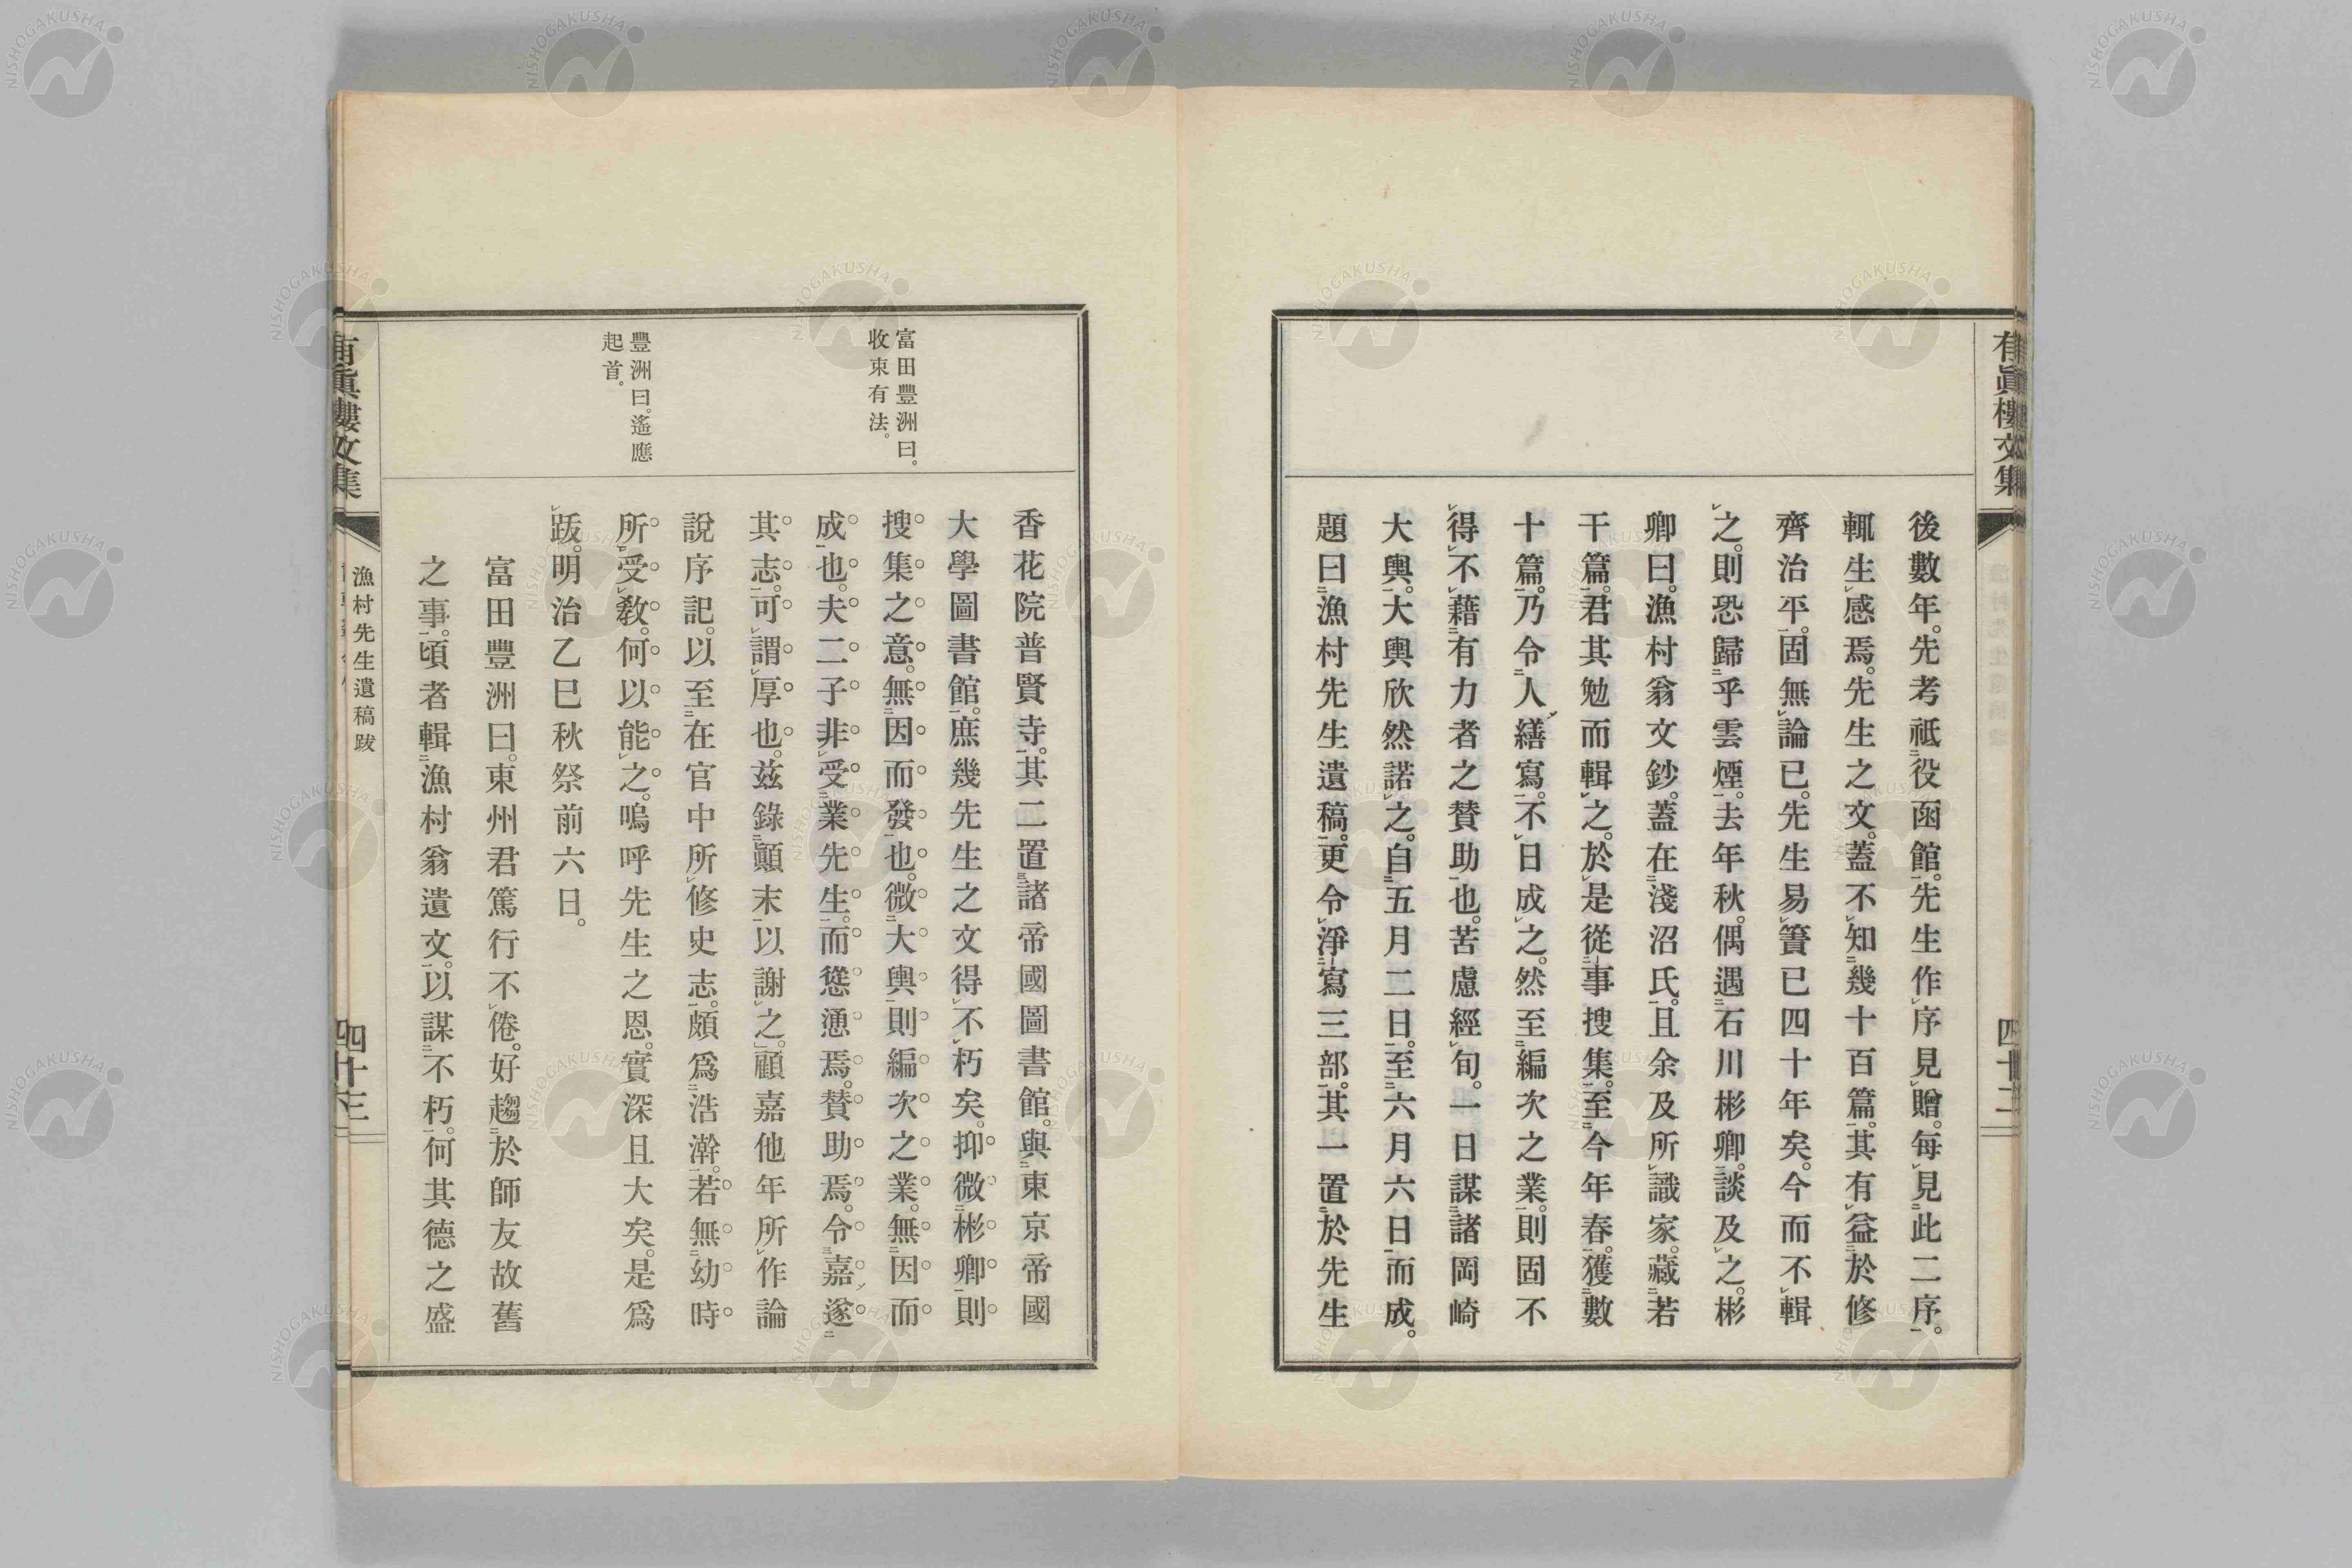 有眞樓文集
四十二
後數年。先考祗役函館。先生作序見贈。每見此二序。
輒生感焉。先生之文。蓋不知幾十百篇。其有益於修
齊治平。固無論已。先生易簀已四十年矣。今而不輯
之。則恐歸乎雲煙。去年秋。偶遇石川彬卿。談及之。彬
卿曰。漁村翁文鈔。蓋在淺沼氏。且余及所識家。藏若
干篇。君其勉而輯之。於是從事搜集。至今年春。獲數
十篇。乃令人繕寫。不日成之。然至編次之業。則固不
得不藉有力者之賛助也。苦慮經旬。一日謀諸岡崎
大輿。大輿欣然諾之。自五月二日。至六月六日而成。
題曰漁村先生遺稿。更令淨寫三部。其一置於先生
富田豐洲曰。
收束有法。
豐洲曰。遙應
起首。
香花院普賢寺。其二置諸帝國圖書館。與東京帝國
大學圖書館。庶幾先生之文得不朽矣。抑微彬卿則
搜集之意。無因而發也。微大輿則編次之業。無因而
成也。夫二子非受業先生。而慫慂焉。賛助焉。令嘉遂
其志。可謂厚也。玆錄顚末以謝之。顧嘉他年所作論
說序記。以至在官中所修史志。頗爲浩瀚。若無幼時
所受敎。何以能之。嗚呼先生之恩。實深且大矣。是爲
跋。明治乙巳秋祭前六日。
富田豐洲曰。東州君篤行不倦。好趨於師友故舊
之事。頃者輯漁村翁遺文。以謀不朽。何其德之盛
有眞樓文集
漁村先生遺稿跋
四十三
NISHOGAKUSHA